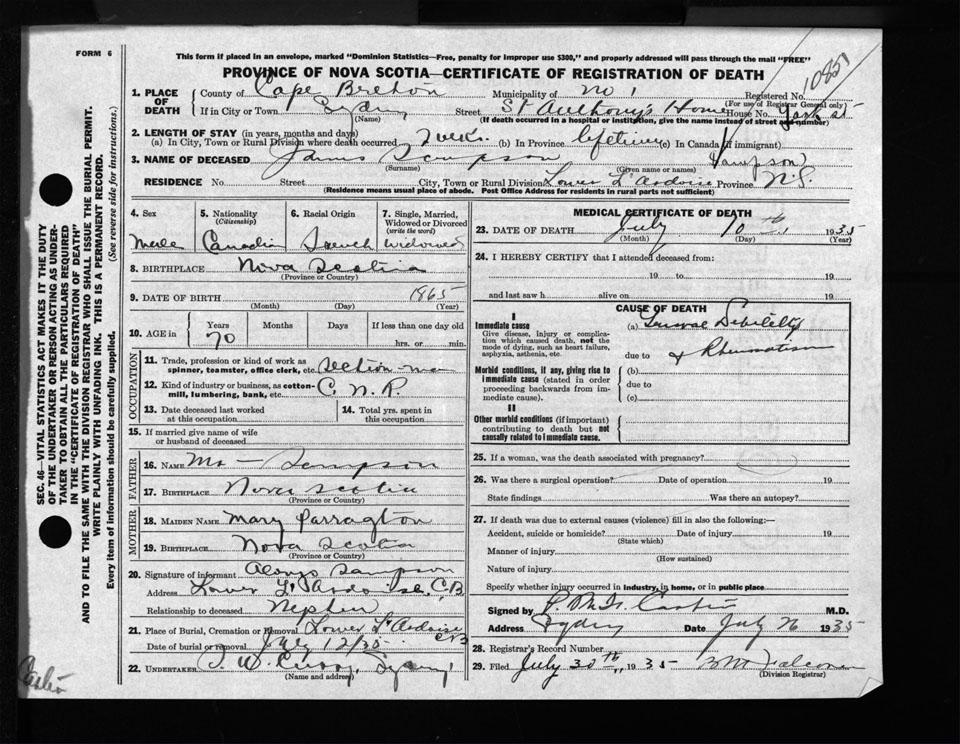 FORM 6
This form if placed in an envelope, marked "Dominion Statistics—Free, penalty for improper use $300," and properly addressed will pass through the mail "FREE"
PROVINCE OF NOVA SCOTIA—CERTIFICATE OF REGISTRATION OF DEATH
1. PLACE OF DEATH
County of Cape Breton Municipality of No 1 Registered No.
(For use of Registrar General only)
If in City or Town Sydney Street St Anthony's Home House No. York St
(Name) (If death occurred in a hospital or institution, give the name instead of street and number)
2. LENGTH OF STAY (in years, months and days)
(a) In City, Town or Rural Division where death occurred (b) In Province lifetime (c) In Canada (if immigrant)
3. NAME OF DECEASED Sampson
(Surname) (Given name or names)
RESIDENCE No. Street City, Town or Rural Division Lower L'Ardoise Province N.S.
(Residence means usual place of abode. Post Office Address for residents in rural parts not sufficient)
4. Sex 5. Nationality (Citizenship) 6. Racial Origin 7. Single, Married, Widowed or Divorced (write the word)
Male Canadian French Widowed
8. BIRTHPLACE Nova Scotia
(Province or Country)
9. DATE OF BIRTH 1865
(Month) (Day) (Year)
10. AGE in Years Months Days If less than one day old
70 hrs. or min.
OCCUPATION
11. Trade, profession or kind of work as spinner, teamster, office clerk, etc. section-man
12. Kind of industry or business, as cotton-mill, lumbering, bank, etc. C.N.R.
13. Date deceased last worked at this occupation 14. Total yrs. spent in this occupation
15. If married give name of wife or husband of deceased
FATHER
16. NAME Sampson
17. BIRTHPLACE Nova Scotia
(Province or Country)
MOTHER
18. MAIDEN NAME Mary
19. BIRTHPLACE Nova Scotia
(Province or Country)
20. Signature of informant Sampson
Address Lower L'Ardoise C.B.
Relationship to deceased
21. Place of Burial, Cremation or Removal Lower L'Ardoise CB
Date of burial or removal July 12/35
22. UNDERTAKER Sydney
(Name and address)
MEDICAL CERTIFICATE OF DEATH
23. DATE OF DEATH July 10th 1935
(Month) (Day) (Year)
24. I HEREBY CERTIFY that I attended deceased from:
19 to 19
and last saw h alive on 19
CAUSE OF DEATH
I
Immediate cause
Give disease, injury or complication which caused death, not the mode of dying, such as heart failure, asphyxia, asthenia, etc.
(a) General Debility
due to & Rheumatism
Morbid conditions, if any, giving rise to immediate cause (stated in order proceeding backwards from immediate cause).
(b)
due to
(c)
II
Other morbid conditions (if important) contributing to death but not causally related to immediate cause.
25. If a woman, was the death associated with pregnancy?
26. Was there a surgical operation? Date of operation 19
State findings Was there an autopsy?
27. If death was due to external causes (violence) fill in also the following:—
Accident, suicide or homicide? Date of injury 19
(State which)
Manner of injury
(How sustained)
Nature of injury
Specify whether injury occurred in industry, in home, or in public place
Signed by M.D.
Address Sydney Date July 26 1935
28. Registrar's Record Number
29. Filed July 30th 1935
(Division Registrar)
SEC. 46—VITAL STATISTICS ACT MAKES IT THE DUTY
OF THE UNDERTAKER OR PERSON ACTING AS UNDER-
TAKER TO OBTAIN ALL THE PARTICULARS REQUIRED
IN THE "CERTIFICATE OF REGISTRATION OF DEATH"
AND TO FILE THE SAME WITH THE DIVISION REGISTRAR WHO SHALL ISSUE THE BURIAL PERMIT.
WRITE PLAINLY WITH UNFADING INK. THIS IS A PERMANENT RECORD.
Every item of information should be carefully supplied. (See reverse side for instructions.)